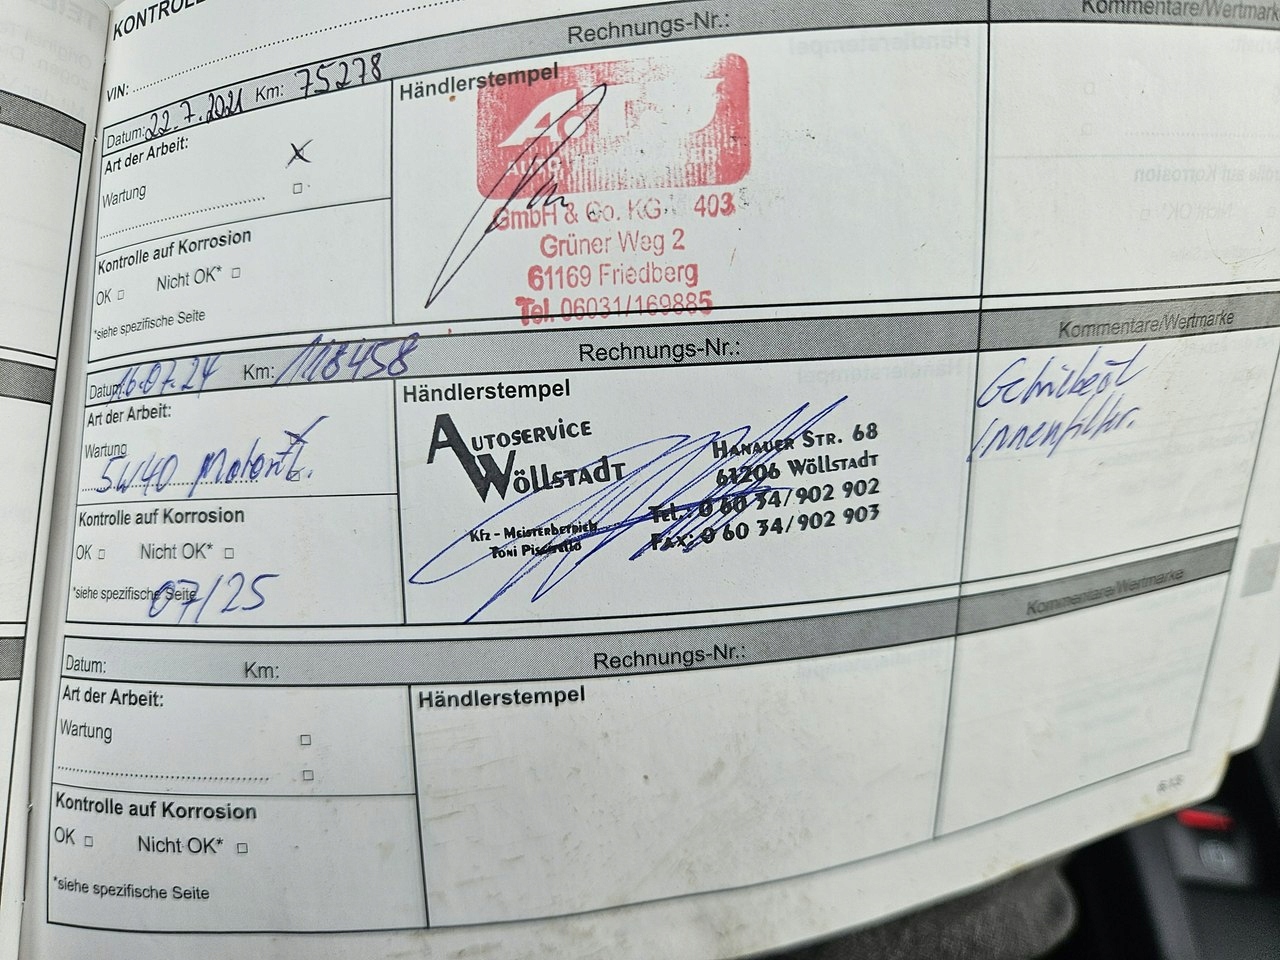 VIN:
Rechnungs-Nr.:
Kommentare/Wertmark
Datum: 22.7.2021 Km: 75278
Händlerstempel
Art der Arbeit:
Wartung
GmbH & Co. KG 403
Grüner Weg 2
61169 Friedberg
Tel. 06031/169885
Kontrolle auf Korrosion
OK Nicht OK*
*siehe spezifische Seite
Rechnungs-Nr.:
Kommentare/Wertmarke
Datum: 16.07.24 Km: 118458
Händlerstempel
Art der Arbeit:
Wartung
5W40 Motoröl.
AUTOSERVICE
WÖLLSTADT
HANAUER STR. 68
61206 WÖLLSTADT
TEL.: 0 60 34/902 902
FAX: 0 60 34/902 903
Kfz - MEISTERBETRIEB
Getriebeöl
Innenfilter.
Kontrolle auf Korrosion
OK Nicht OK*
*siehe spezifische Seite
07/25
Rechnungs-Nr.:
Kommentare/Wertmarke
Datum: Km:
Händlerstempel
Art der Arbeit:
Wartung
Kontrolle auf Korrosion
OK Nicht OK*
*siehe spezifische Seite